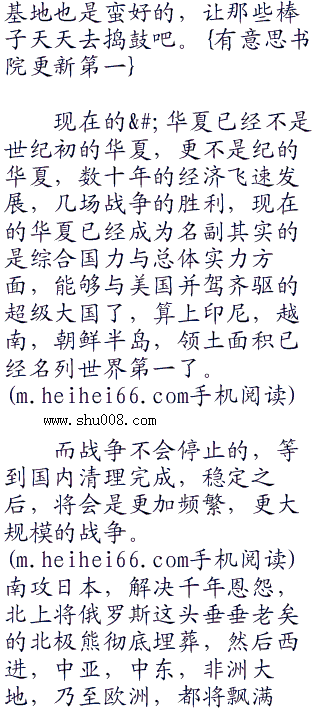 基地也是蛮好的，让那些棒
子天天去捣鼓吧。{有意思书
院更新第一}
现在的&#;华夏已经不是
世纪初的华夏，更不是纪的
华夏，数十年的经济飞速发
展，几场战争的胜利，现在
的华夏已经成为名副其实的
是综合国力与总体实力方
面，能够与美国并驾齐驱的
超级大国了，算上印尼，越
南，朝鲜半岛，领土面积已
经名列世界第一了。
(m.heihei66.com手机阅读)
www.shu008.com
而战争不会停止的，等
到国内清理完成，稳定之
后，将会是更加频繁，更大
规模的战争。
(m.heihei66.com手机阅读)
南攻日本，解决千年恩怨，
北上将俄罗斯这头垂垂老矣
的北极熊彻底埋葬，然后西
进，中亚，中东，非洲大
地，乃至欧洲，都将飘满